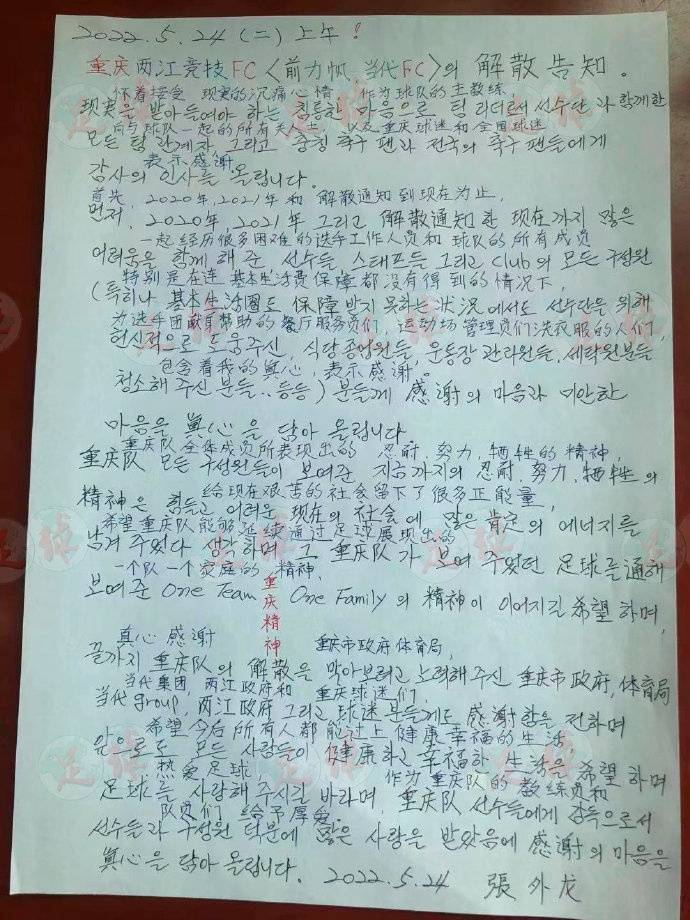 2022.5.24 (二) 上午!
重庆 两江竞技FC〈前力帆.当代FC〉의 解散告知。
怀着接受 现实的沉痛心情 作为球队的主教练,
现实을 받아들여야 하는 침통한 마음으로, 팀 리더로서 선수단과 함께한
向与球队一起的所有关人士, 以及重庆球迷和全国球迷
모든 팀 관계자 그리고 충칭 축구 팬과 전국의 축구 팬들에게
表示感谢,
감사의 인사를 올립니다.
首先, 2020年,2021年 和 解散通知到现在为止,
먼저, 2020年, 2021年 그리고 解散通知한 现在까지 많은
一起经历很多困难的选手工作人员和球队的所有成员
어려움을 함께 해준 선수들, 스태프들 그리고 Club의 모든 구성원
特别是在连 基本生活费保障都没有得到的情况下,
(특히나 基本生活圈도 保障받지 못하는 状况에서도 선수단을 위해
为选手团献身帮助的餐厅服务员们, 运动场管理员们洗衣服的人们,
헌신적으로 도움주신, 식당종업원들, 운동장관리원들, 세탁원분들
包含着我的真心, 表示感谢。
청소해 주신 분들..등등) 분들께 感谢의 마음과 미안한
마음을 真心을 담아 올립니다
重庆队全体成员所表现出的 忍耐,努力,牺牲的精神,
重庆队 모든 구성원들이 보여준 지금까지의 忍耐, 努力, 牺牲의
给现在艰苦的社会留下了很多正能量,
精神은 힘들고 어려운 현재의 社会에 많은 肯定의 에너지를
希望重庆队能够延续通过足球展现出的
남겨 주었다 생각하며 그 重庆队가 보여 주었던 足球를 通해
一个队一个家庭的 精神,
보여준 One Team One Family의 精神이 이어지길 希望하며,
重庆精神
真心感谢 重庆市政府体育局,
끝까지 重庆队의 解散은 막아보려고 노력해 주신 重庆市政府,体育局
当代集团, 两江政府和 重庆球迷们,
当代group, 两江政府 그리고 球迷 분들께도 感谢함을 전하며
希望今后所有人都能过上健康幸福的生活
앞으로도 모든 사람들이 健康하고 幸福한 生活을 希望하며
热爱足球 作为重庆队的教练员和
足球를 사랑해 주시길 바라며 重庆队 선수들에게 감독으로서
队员们 给予厚爱。
선수들과 구성원 덕분에 많은 사랑을 받았음에 感谢의 마음을
真心을 담아 올립니다. 2022.5.24 張外龙